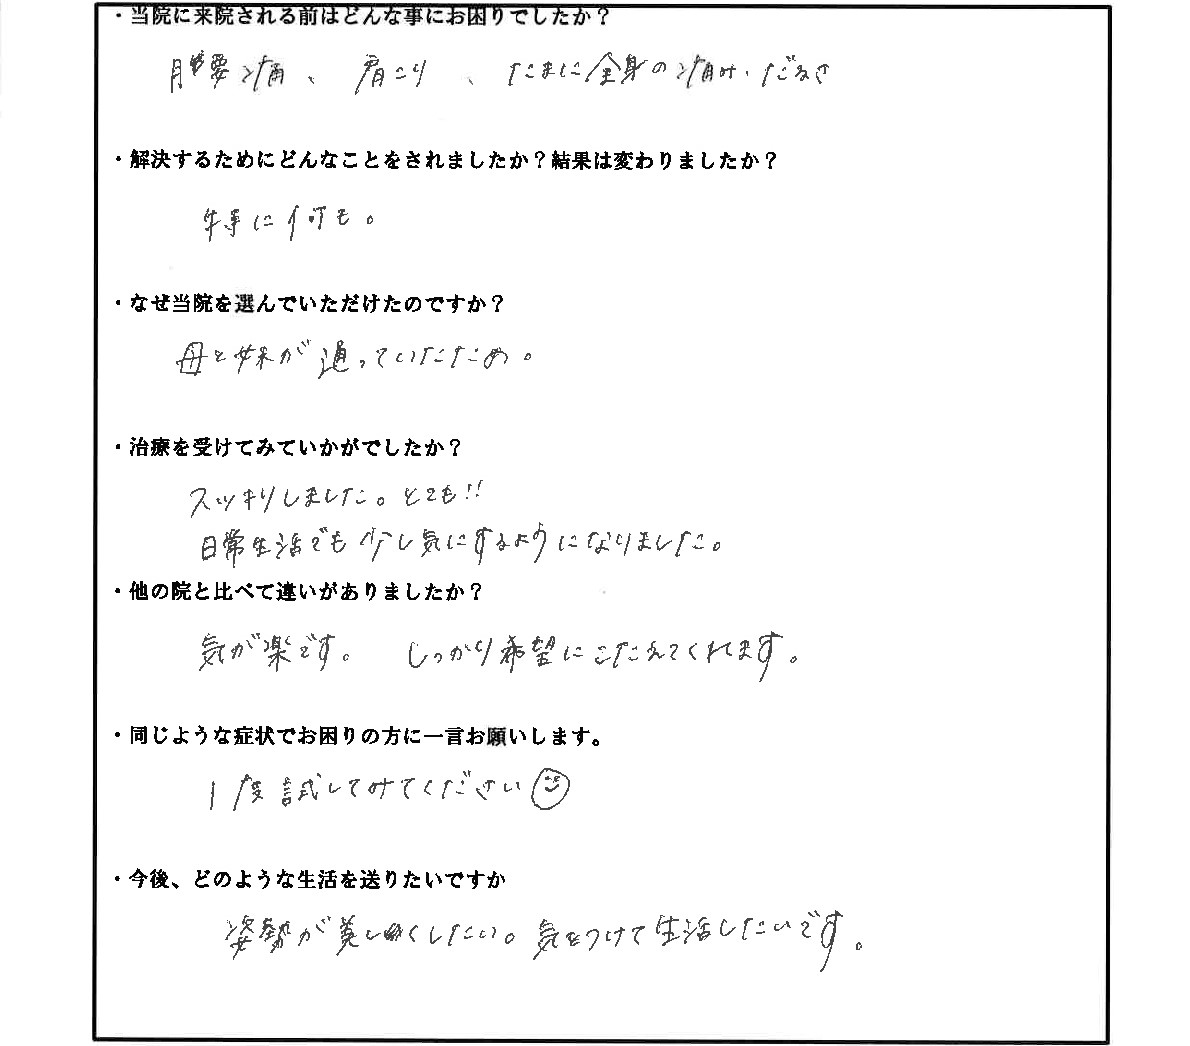 ・当院に来院される前はどんな事にお困りでしたか？
腰痛、肩こり、たまに全身の痛み・だるさ
・解決するためにどんなことをされましたか？結果は変わりましたか？
特に何も。
・なぜ当院を選んでいただけたのですか？
母と妹が通っていたため。
・治療を受けてみていかがでしたか？
スッキリしました。とても!!
日常生活でも少し気にするようになりました。
・他の院と比べて違いがありましたか？
気が楽です。 しっかり希望にこたえてくれます。
・同じような症状でお困りの方に一言お願いします。
1度試してみてください
・今後、どのような生活を送りたいですか
姿勢が美しくしたい。気をつけて生活したいです。